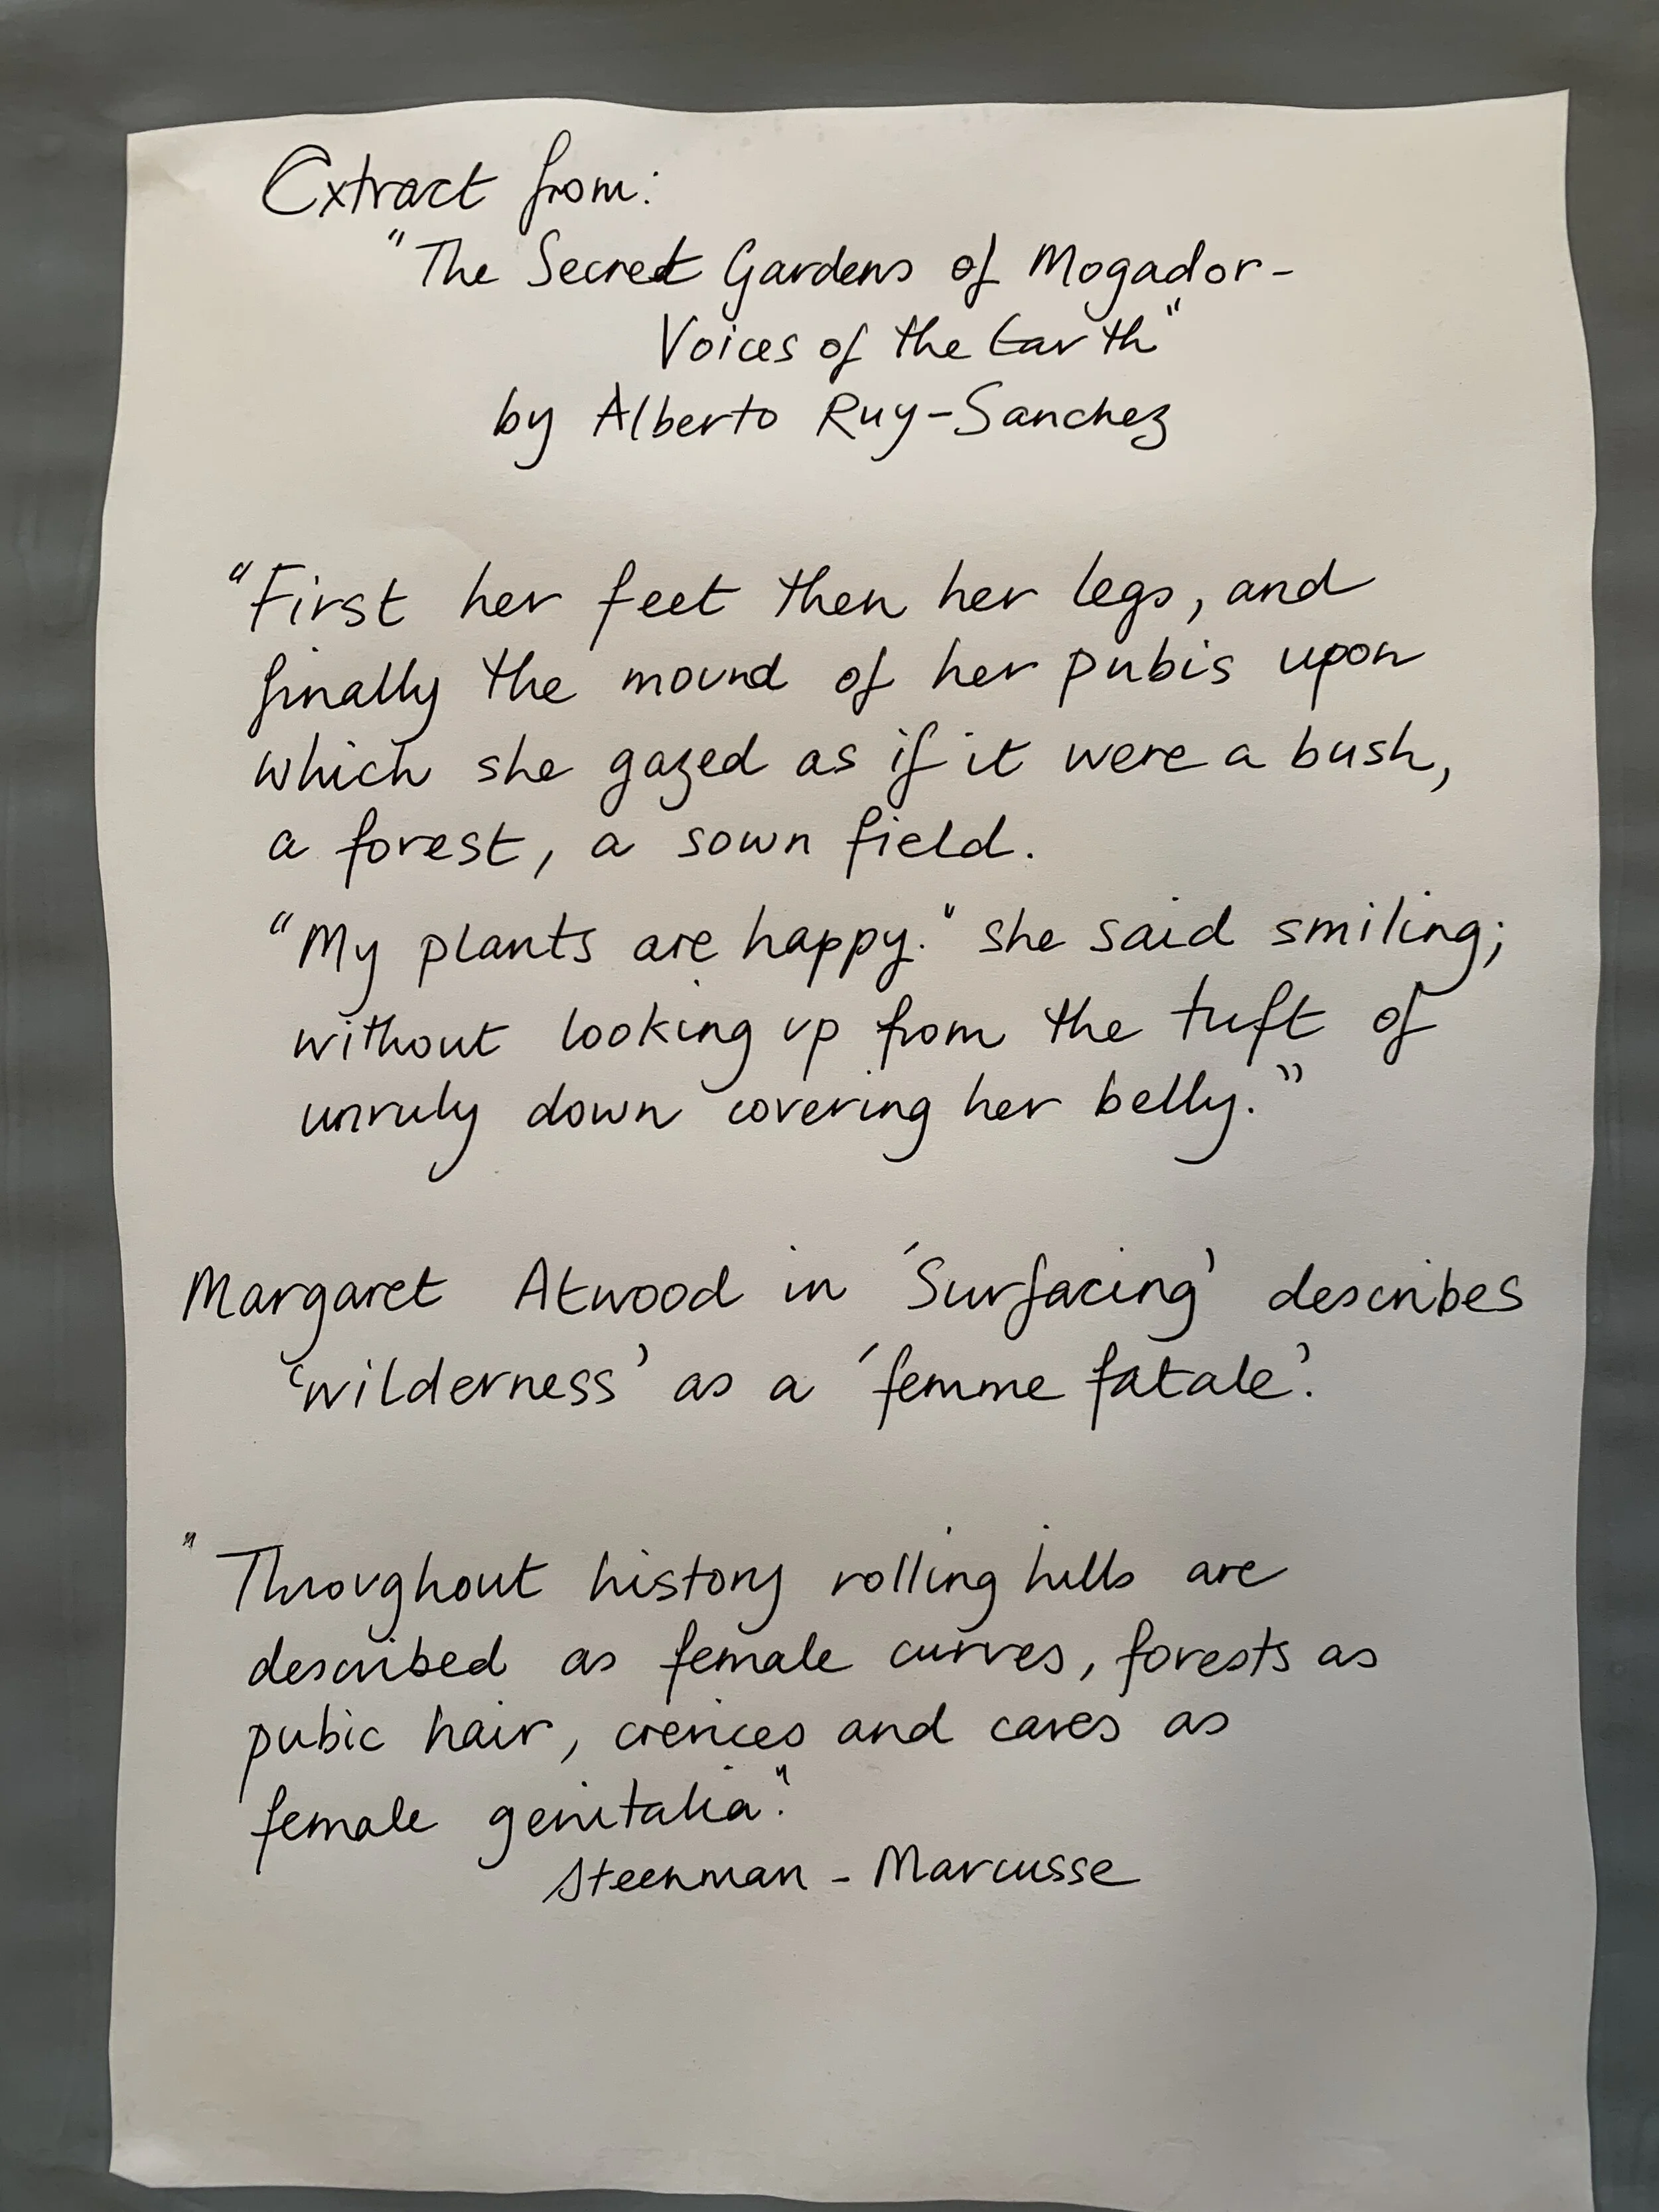 Extract from:
"The Secret Gardens of Mogador-
Voices of the Earth"
by Alberto Ruy-Sanchez
"First her feet then her legs, and
finally the mound of her pubis upon
which she gazed as if it were a bush,
a forest, a sown field.
"My plants are happy." she said smiling;
without looking up from the tuft of
unruly down covering her belly."
Margaret Atwood in 'Surfacing' describes
'wilderness' as a 'femme fatale'.
"Throughout history rolling hills are
described as female curves, forests as
pubic hair, crevices and caves as
female genitalia."
Steenman-Marcusse